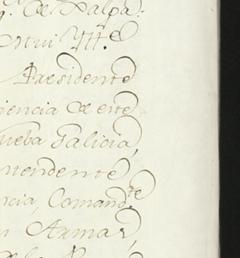 de Xalpa.
Mui Ytt.e
Presidente
iencia de este
ueba Galicia,
ntendente
ncia, Comand.te
n Armas,